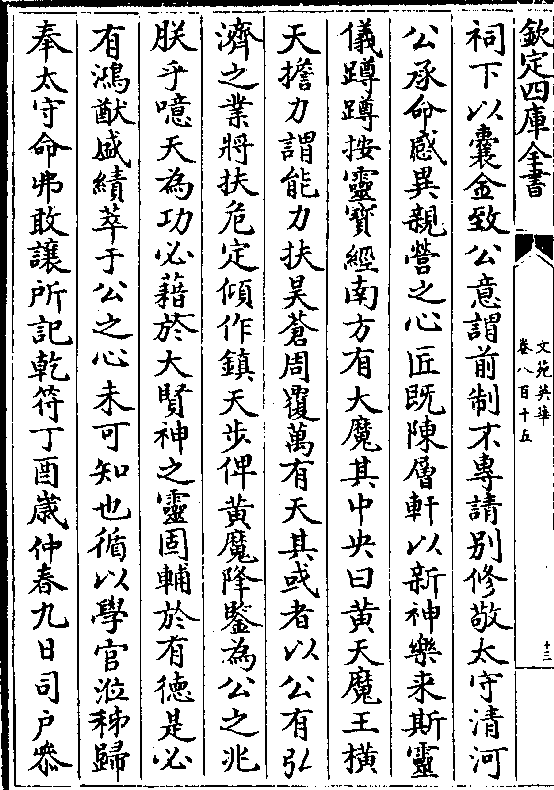 欽定四庫全書
文苑英華
卷八百十五
十三
祠下以囊金致公意謂前制不專請别修敬太守清河
公承命感異親營之心匠既陳層軒以新神樂来斯靈
儀蹲蹲按靈寳經南方有大魔其中央曰黄天魔王横
天擔力謂能力扶昊蒼周覆萬有天其或者以公有弘
濟之業將扶危定傾作鎮天步俾黄魔降鑒為公之兆
朕乎噫天為功必藉於大賢神之靈固輔於有徳是必
有鴻猷盛績萃于公之心未可知也循以學官涖秭歸
奉太守命弗敢讓所記乾符丁酉嵗仲春九日司户叅